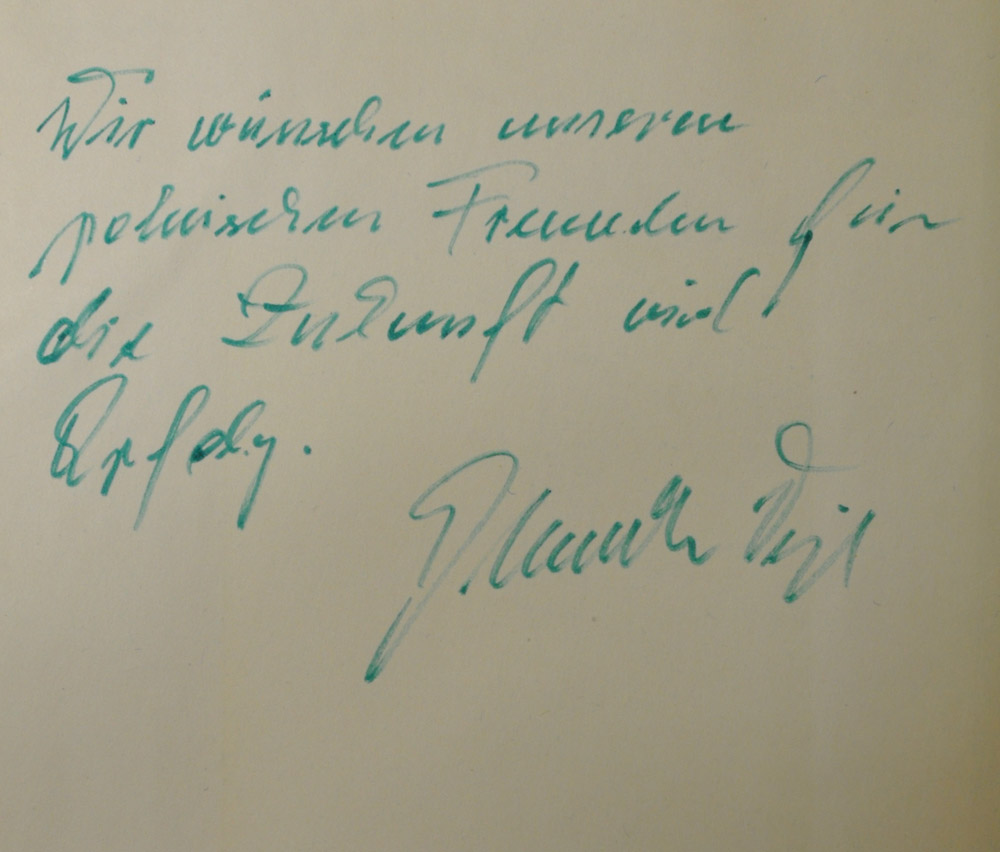 Wir wünschen unseren
polnischen Freunden für
die Zukunft viel
Erfolg.